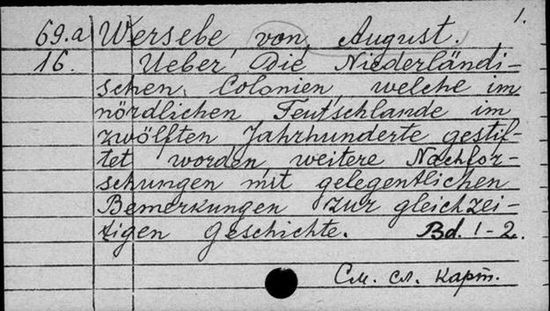 1.
69.a Wersebe von, August.
16. Ueber Die Niederländi-
schen Colonien, welche im
nördlichen Teutschlande im
zwölften Jahrhunderte gestif-
tet worden weitere Nachfor-
schungen mit gelegentlichen
Bemerkungen zur gleichzei-
tigen Geschichte. Bd. 1-2.
См. сл. карт.